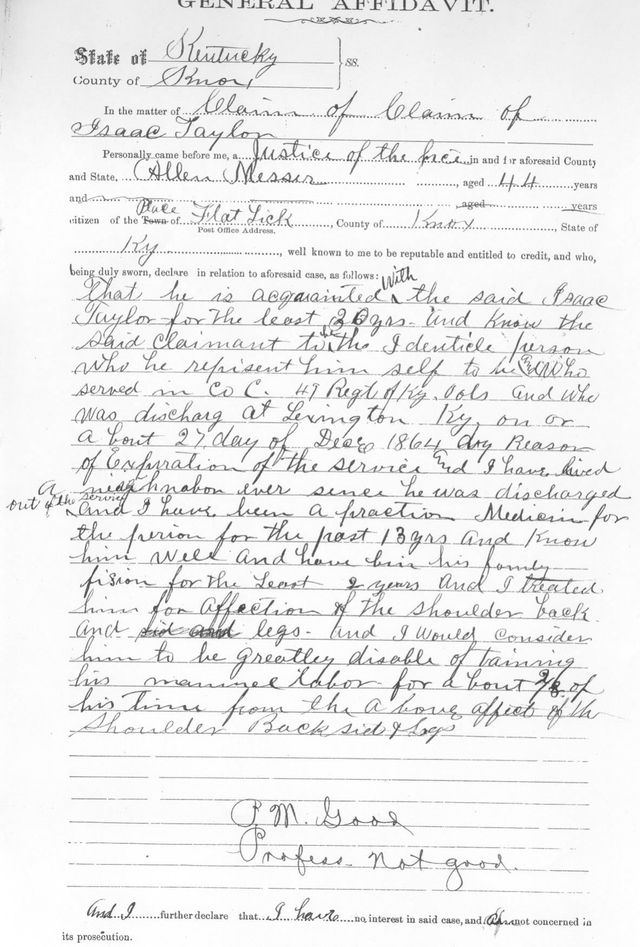 GENERAL AFFIDAVIT.
State of Kentucky
County of Knox, } ss.
In the matter of Claim of Claim of
Isaac Taylor
Personally came before me, a Justice of the pece in and for aforesaid County
and State, Allen Messer, aged 44 years
and aged years
citizen of the Town of Place Flat Lick, County of Knox, State of
Post Office Address.
Ky, well known to me to be reputable and entitled to credit, and who,
being duly sworn, declare in relation to aforesaid case, as follows:
That he is acquainted With the said Isaac
Taylor for the least 20 yrs. and Know the
said claimant to be the Identicle person
Who he repisent him self to be and Who
served in Co C. 49 Regt of Ky. Vols and Who
was discharg at Lexington Ky, on or
a bout 27 day of Dece 1864 by Reason
of Expiration of the service and I have lived
A near hnabon ever since he was discharged
out of the service and I have been a praction Medicin for
the perion for the past 13 yrs and Know
him Well and have bin his family
fision for the Least 2 years And I treated
him for affection of the shoulder back
and sid and legs - and I Would consider
him to be greatley disable of taining
his manuel labor for a bout 2/3 of
his time from the a bove affect of the
Shoulder Back sid & Legs
P. M. Good
Profess. not good.
And I further declare that I have no interest in said case, and am not concerned in
its prosecution.